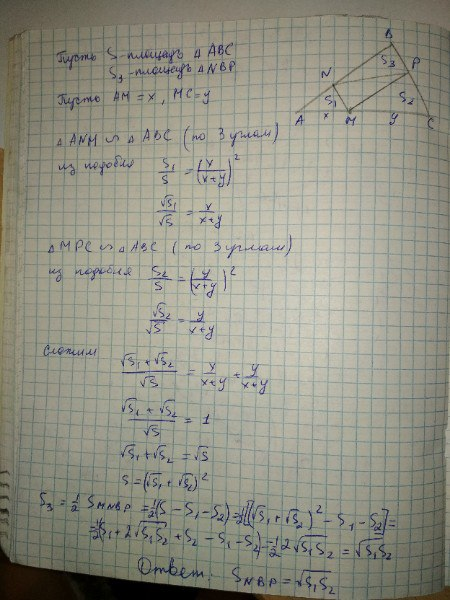 Пусть S-площадь △ ABC
S₃ - площадь △ NBP
Пусть AM = x, MC = y
B
S₃
P
N
S₁
S₂
A
x
M
y
C
△ ANM ∽ △ ABC (по 3 углам)
из подобия S₁/S = (x/(x+y))²
√S₁/√S = x/(x+y)
△ MPC ∽ △ ABC (по 3 углам)
из подобия S₂/S = (y/(x+y))²
√S₂/√S = y/(x+y)
Сложим
(√S₁ + √S₂)/√S = x/(x+y) + y/(x+y)
(√S₁ + √S₂)/√S = 1
√S₁ + √S₂ = √S
S = (√S₁ + √S₂)²
S₃ = 1/2 S MNBP = 1/2(S - S₁ - S₂) = 1/2[(√S₁ + √S₂)² - S₁ - S₂] =
= 1/2(S₁ + 2√S₁S₂ + S₂ - S₁ - S₂) = 1/2 2√S₁S₂ = √S₁S₂
Ответ: S NBP = √S₁S₂